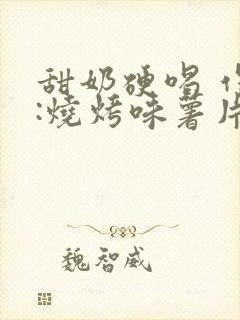 甜奶硬唱
:燒烤味薯片
魏智威